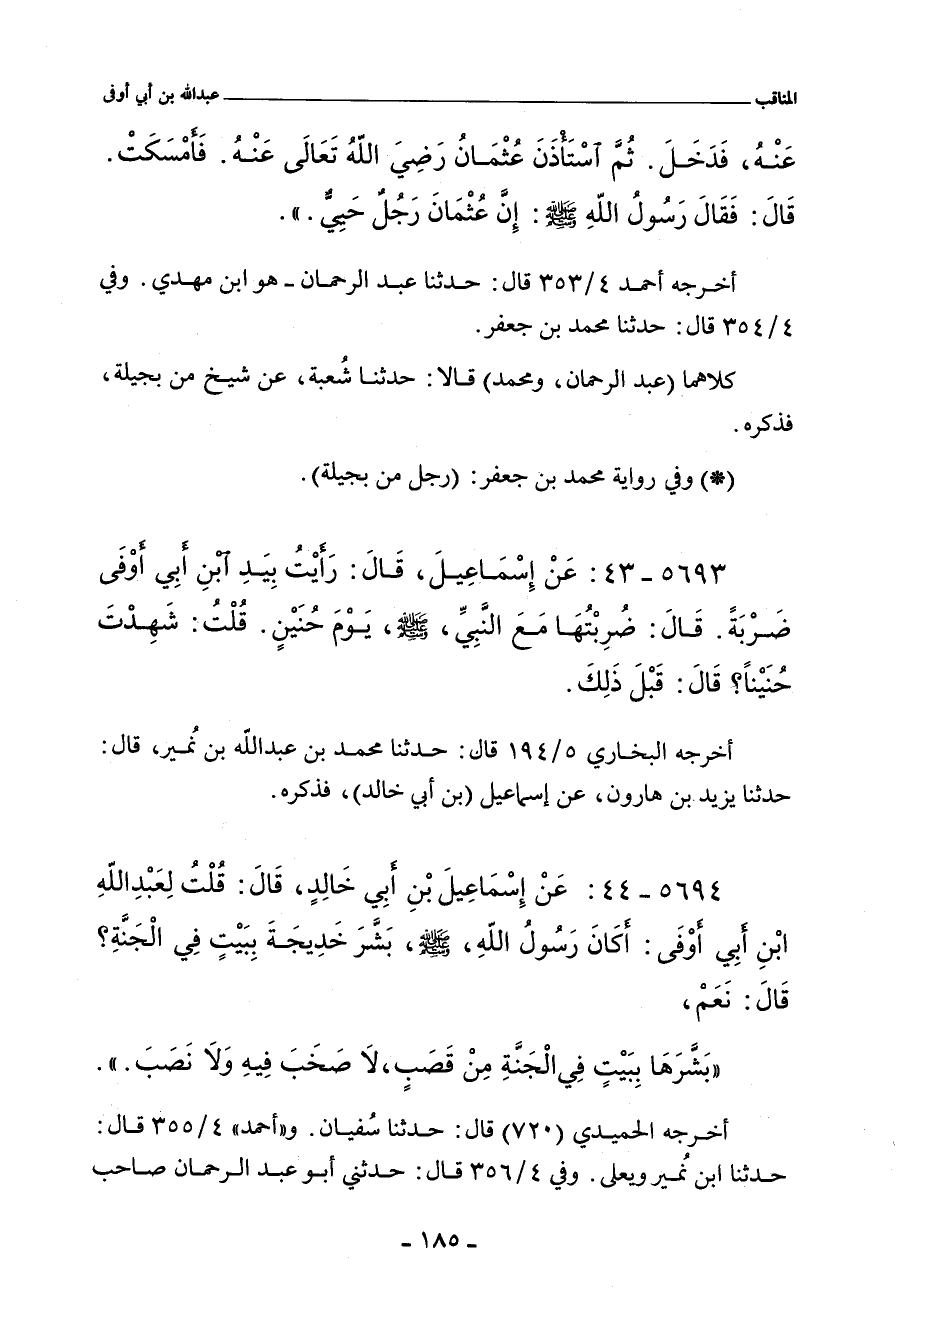 المناقب ــــــــــــــــ عبدالله بن أبي أوفى
عَنْهُ، فَدَخَلَ. ثُمَّ ٱسْتَأْذَنَ عُثْمَانُ رَضِيَ اللَّهُ تَعَالَى عَنْهُ. فَأَمْسَكَتْ.
قَالَ: فَقَالَ رَسُولُ اللهِ ﷺ: إِنَّ عُثْمَانَ رَجُلٌ حَيِيٌّ.».
أخرجه أحمد ٣٥٣/٤ قال: حدثنا عبد الرحمان ـ هو ابن مهدي. وفي
٣٥٤/٤ قال: حدثنا محمد بن جعفر.
كلاهما (عبد الرحمان، ومحمد) قالا: حدثنا شُعبة، عن شيخ من بجيلة،
فذكره.
(*) وفي رواية محمد بن جعفر: (رجل من بجيلة).
٥٦٩٣ ـ ٤٣: عَنْ إِسْمَاعِيلَ، قَالَ: رَأَيْتُ بِيَدِ ٱبْنِ أَبِي أَوْفَى
ضَرْبَةً. قَالَ: ضُرِبْتُهَا مَعَ النَّبِيِّ، ﷺ، يَوْمَ حُنَيْنٍ. قُلْتُ: شَهِدْتَ
حُنَيْناً؟ قَالَ: قَبْلَ ذَلِكَ.
أخرجه البخاري ١٩٤/٥ قال: حدثنا محمد بن عبدالله بن نُمير، قال:
حدثنا يزيد بن هارون، عن إسماعيل (بن أبي خالد)، فذكره.
٥٦٩٤ ـ ٤٤: عَنْ إِسْمَاعِيلَ بْنِ أَبِي خَالِدٍ، قَالَ: قُلْتُ لِعَبْدِاللَّهِ
ابْنِ أَبِي أَوْفَى: أَكَانَ رَسُولُ اللهِ، ﷺ، بَشَّرَ خَدِيجَةَ بِبَيْتٍ فِي الْجَنَّةِ؟
قَالَ: نَعَمْ،
«بَشَّرَهَا بِبَيْتٍ فِي الْجَنَّةِ مِنْ قَصَبٍ، لَا صَخَبَ فِيهِ وَلَا نَصَبَ.».
أخرجه الحميدي (٧٢٠) قال: حدثنا سُفيان. و«أحمد» ٣٥٥/٤ قال:
حدثنا ابن نُمير ويعلى. وفي ٣٥٦/٤ قال: حدثني أبو عبد الرحمان صاحب
ـ ١٨٥ ـ